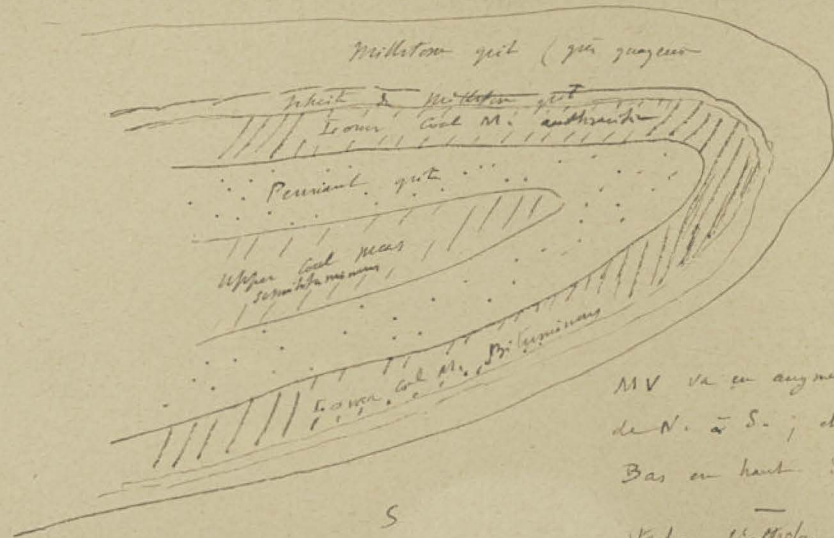 Millstone grit (grès
Schiste de Millstone grit
Lower Coal M. anthracite
Pennant grit
Upper Coal meas
semibitumineux
Lower Coal M. Bitumineux
MV va en augme
de N. à S. ;
Bas en haut
S